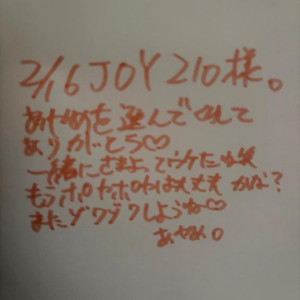 2/16 JOY210様。
あやめを選んでくれて
ありがとう♡
一緒にさまよってウケたね笑
もうポカポカは大丈夫かな?
またゾクゾクしようね♡
あやめ。